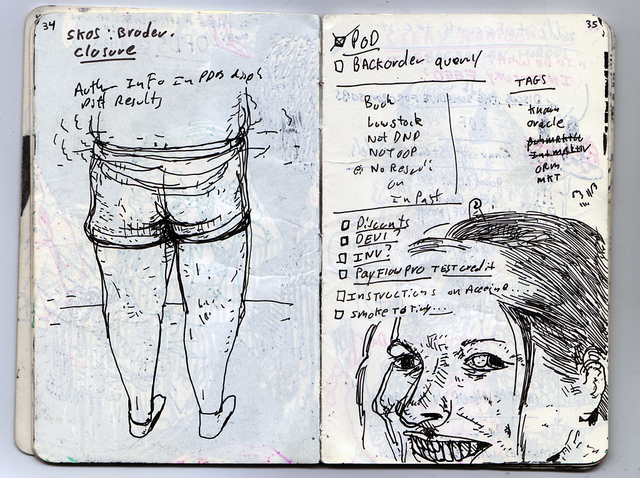 34
SKOS: Broder.
closure
Auth InFo In PDPs
Diff Results
35
POD
BACKorder query
TAGS
Book
Low stock
Not DNP
NOT OOP
No Resed:
on
In Past
known
oracle
ORM
MKT
Discounts
DEVI?
INV?
PayFlowPro TEST credit
INSTRUCTIONS on
smoke